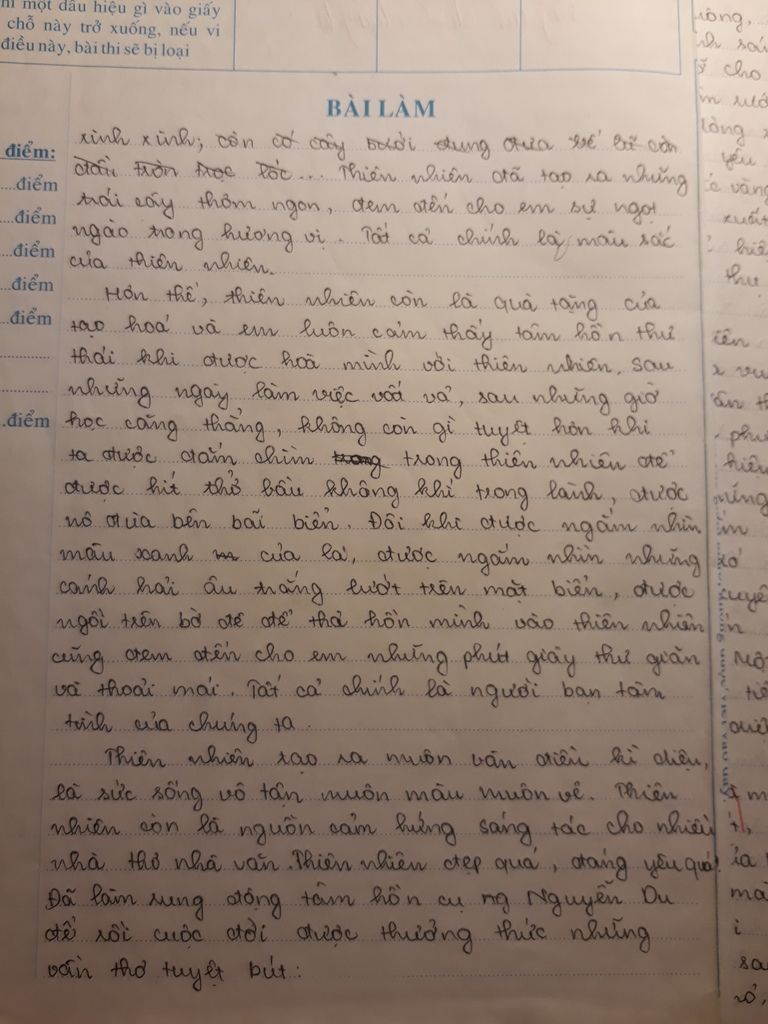 một dấu hiệu gì vào giấy
chỗ này trở xuống, nếu vi
điều này, bài thi sẽ bị loại
BÀI LÀM
điểm:
...điểm
...điểm
...điểm
...điểm
...điểm
.điểm
xinh xinh; còn có cây bưởi đung đưa
đầu tròn trọc lốc... Thiên nhiên đã tạo ra những
trái cây thơm ngon, đem đến cho em sự ngọt
ngào trong hương vị. Tất cả chính là màu sắc
của thiên nhiên.
Hơn thế, thiên nhiên còn là quà tặng của
tạo hoá và em luôn cảm thấy tâm hồn thư
thái khi được hoà mình với thiên nhiên. Sau
những ngày làm việc vất vả, sau những giờ
học căng thẳng, không còn gì tuyệt hơn khi
ta được đắm chìm trong trong thiên nhiên để
được hít thở bầu không khí trong lành, được
nô đùa bên bãi biển. Đôi khi được ngắm nhìn
màu xanh của lá, được ngắm nhìn những
cánh hải âu trắng lướt trên mặt biển, được
ngồi trên bờ đê để thả hồn mình vào thiên nhiên
cũng đem đến cho em những phút giây thư giãn
và thoải mái. Tất cả chính là người bạn tâm
tình của chúng ta.
Thiên nhiên tạo ra muôn vàn điều kì diệu,
là sức sống vô tận muôn màu muôn vẻ. Thiên
nhiên còn là nguồn cảm hứng sáng tác cho nhiều
nhà thơ nhà văn. Thiên nhiên đẹp quá, đáng yêu quá!
Đã làm rung động tâm hồn cụ Nguyễn Du
để rồi cuộc đời được thưởng thức những
vần thơ tuyệt bút: